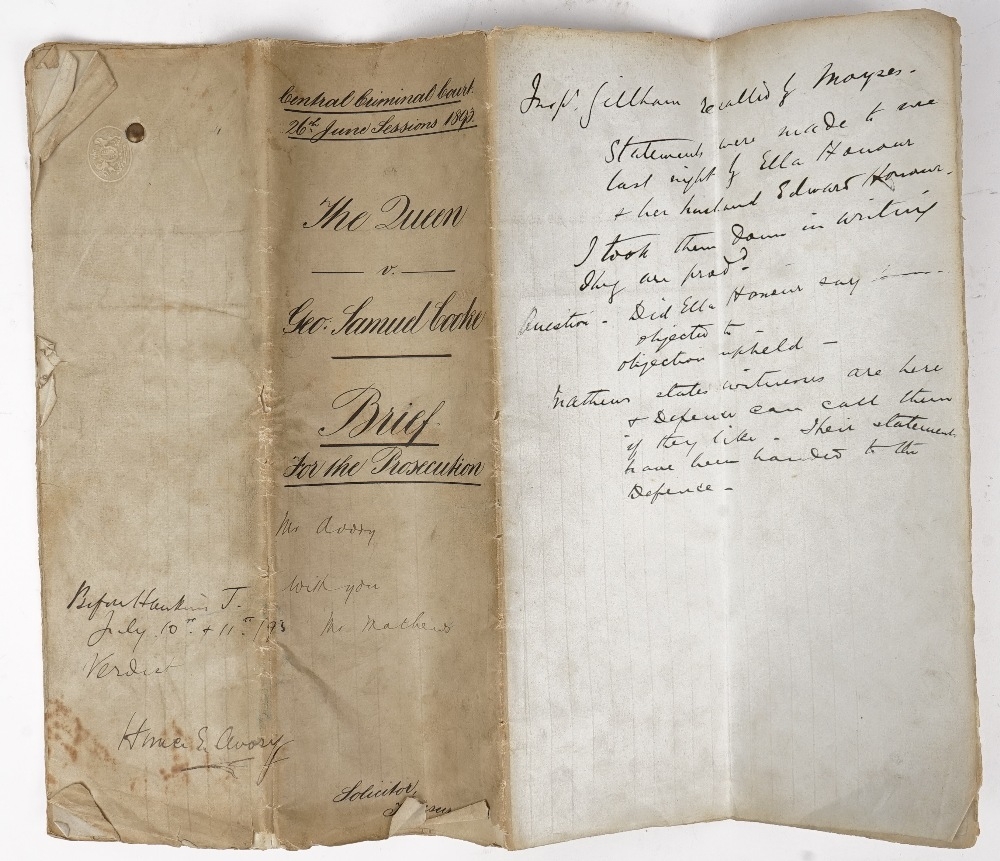 Before Hawkins J.
July 10th & 11th /93
Verdict
Horace E. Avory
Central Criminal Court.
26th June Sessions 1893.
The Queen
v.
Geo. Samuel Cooke
Brief
For the Prosecution
Mr Avory
With you
Mr Mathews
Solicitor,
Inspr. Gillham recalled by Moyses.
Statements were made to me
last night by Ella Honour
& her husband Edward Honour.
I took them down in writing
They are prodd.
Question - Did Ella Honour say
objected to
objection upheld -
Mathews states witnesses are here
& Defence can call them
if they like - Their statements
have been handed to the
Defence -